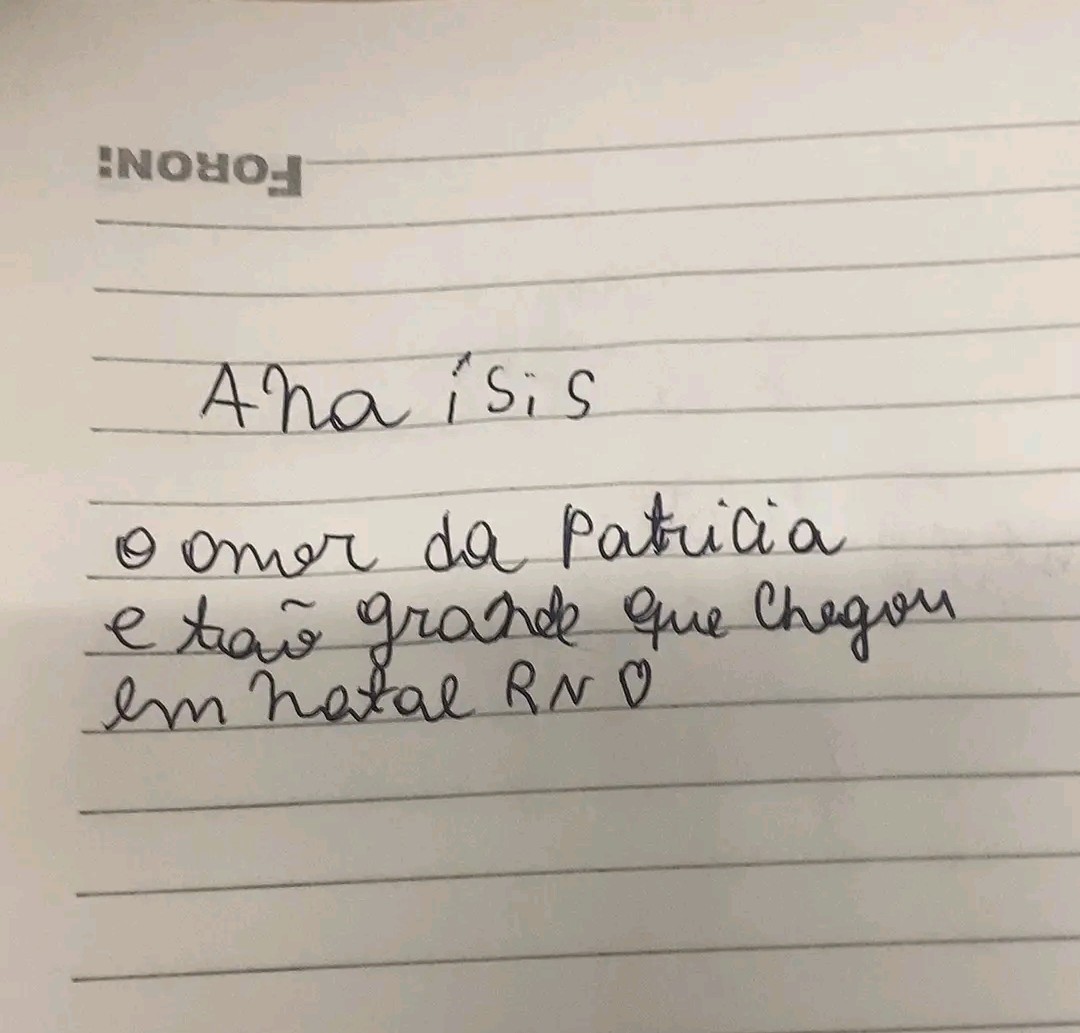 FORONI
Ana ísis
o amor da Patricia
e tão grande que chegou
em natal RN